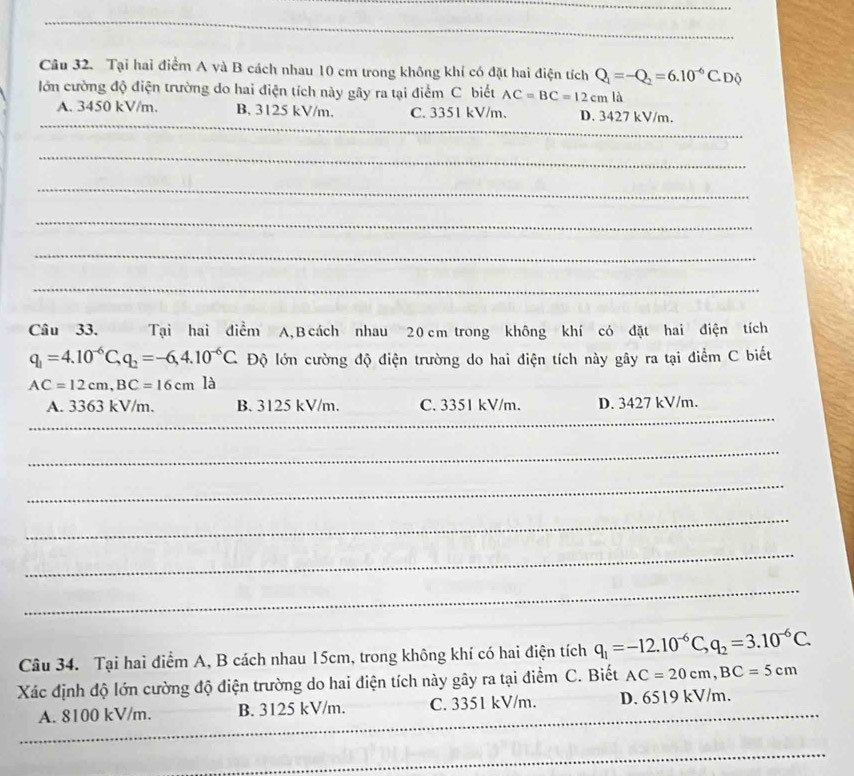 Câu 32. Tại hai điểm A và B cách nhau 10 cm trong không khí có đặt hai điện tích Q₁ = –Q₂ = 6.10⁻⁶ C. Độ
lớn cường độ điện trường do hai điện tích này gây ra tại điểm C biết AC = BC = 12 cm là
A. 3450 kV/m. B. 3125 kV/m. C. 3351 kV/m. D. 3427 kV/m.
Câu 33. Tại hai điểm A,B cách nhau 20 cm trong không khí có đặt hai điện tích
q₁ = 4.10⁻⁶ C, q₂ = –6,4.10⁻⁶ C. Độ lớn cường độ điện trường do hai điện tích này gây ra tại điểm C biết
AC = 12 cm, BC = 16 cm là
A. 3363 kV/m. B. 3125 kV/m. C. 3351 kV/m. D. 3427 kV/m.
Câu 34. Tại hai điểm A, B cách nhau 15cm, trong không khí có hai điện tích q₁ = –12.10⁻⁶ C, q₂ = 3.10⁻⁶ C.
Xác định độ lớn cường độ điện trường do hai điện tích này gây ra tại điểm C. Biết AC = 20 cm, BC = 5 cm
A. 8100 kV/m. B. 3125 kV/m. C. 3351 kV/m. D. 6519 kV/m.